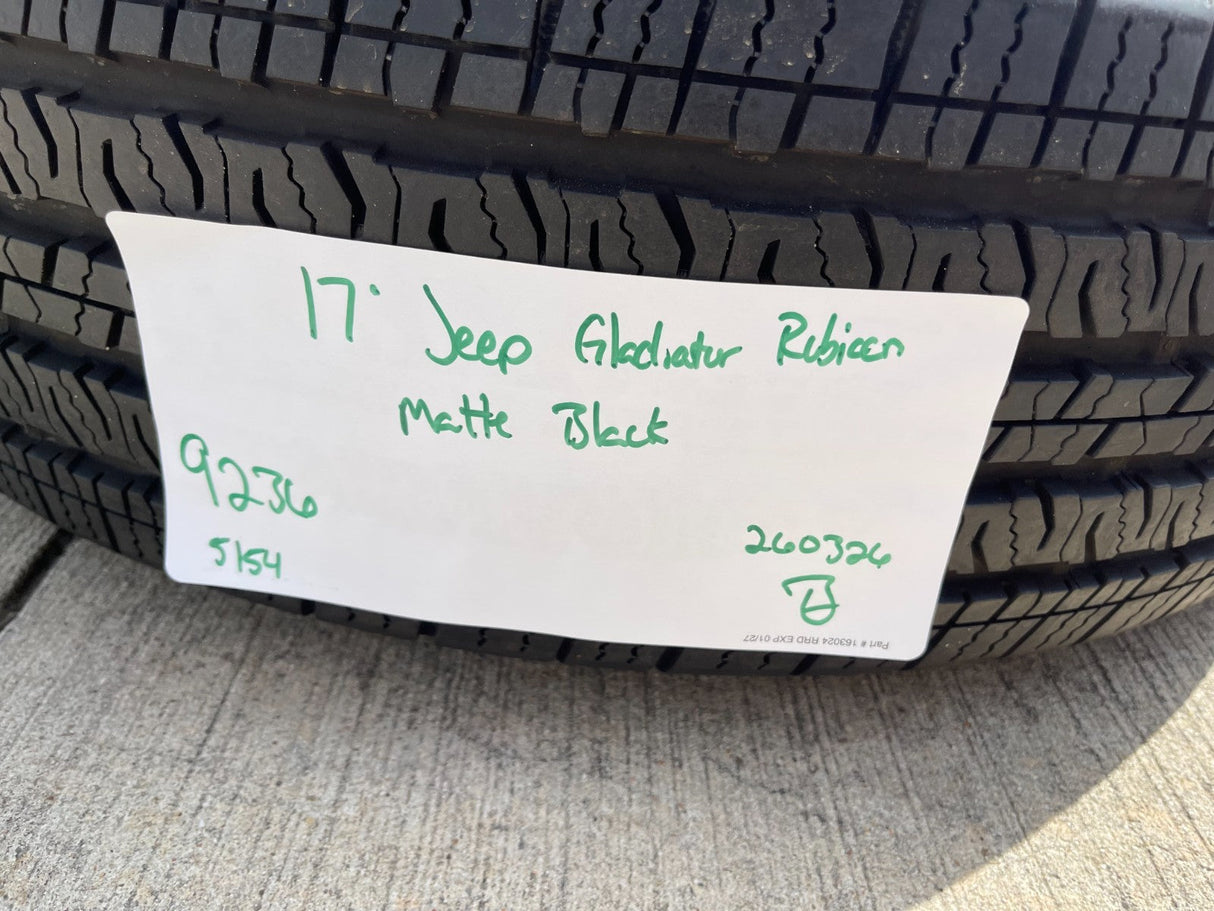 17" Jeep Gladiator Rubicon
Matte Black
9236
5154
260326
Part # 163024 RRD EXP 01/27